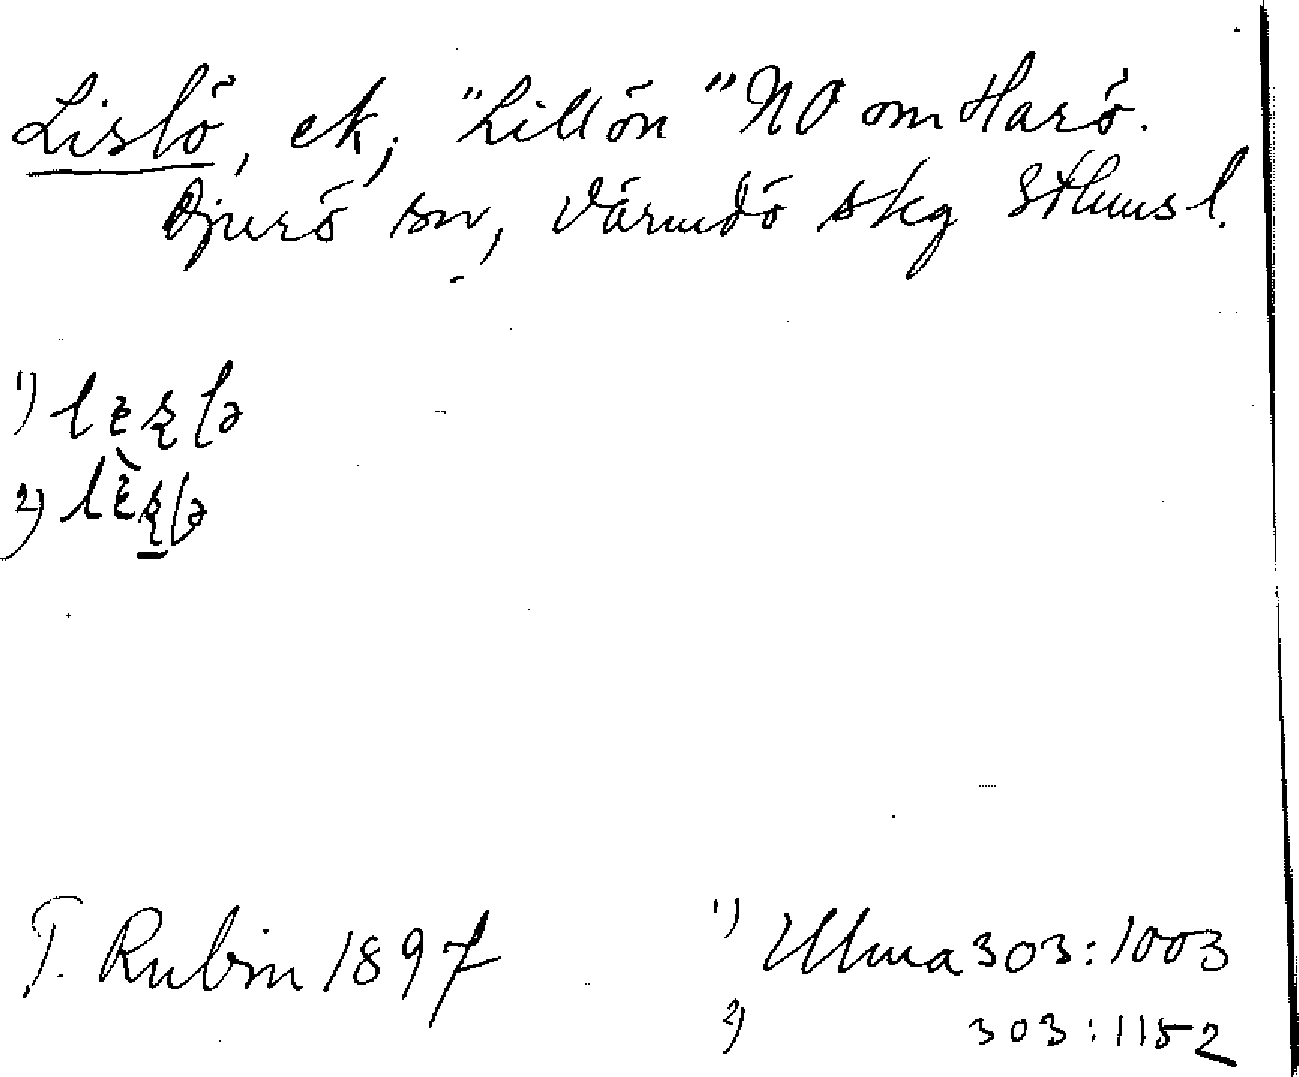 Lislö, ek, "Lillön" NO om Harö.
Djurö sn, Värmdö skg Sthlms l.
1)
2)
T. Rubin 1897
1) Ulma 303:1003
2) 303:1152